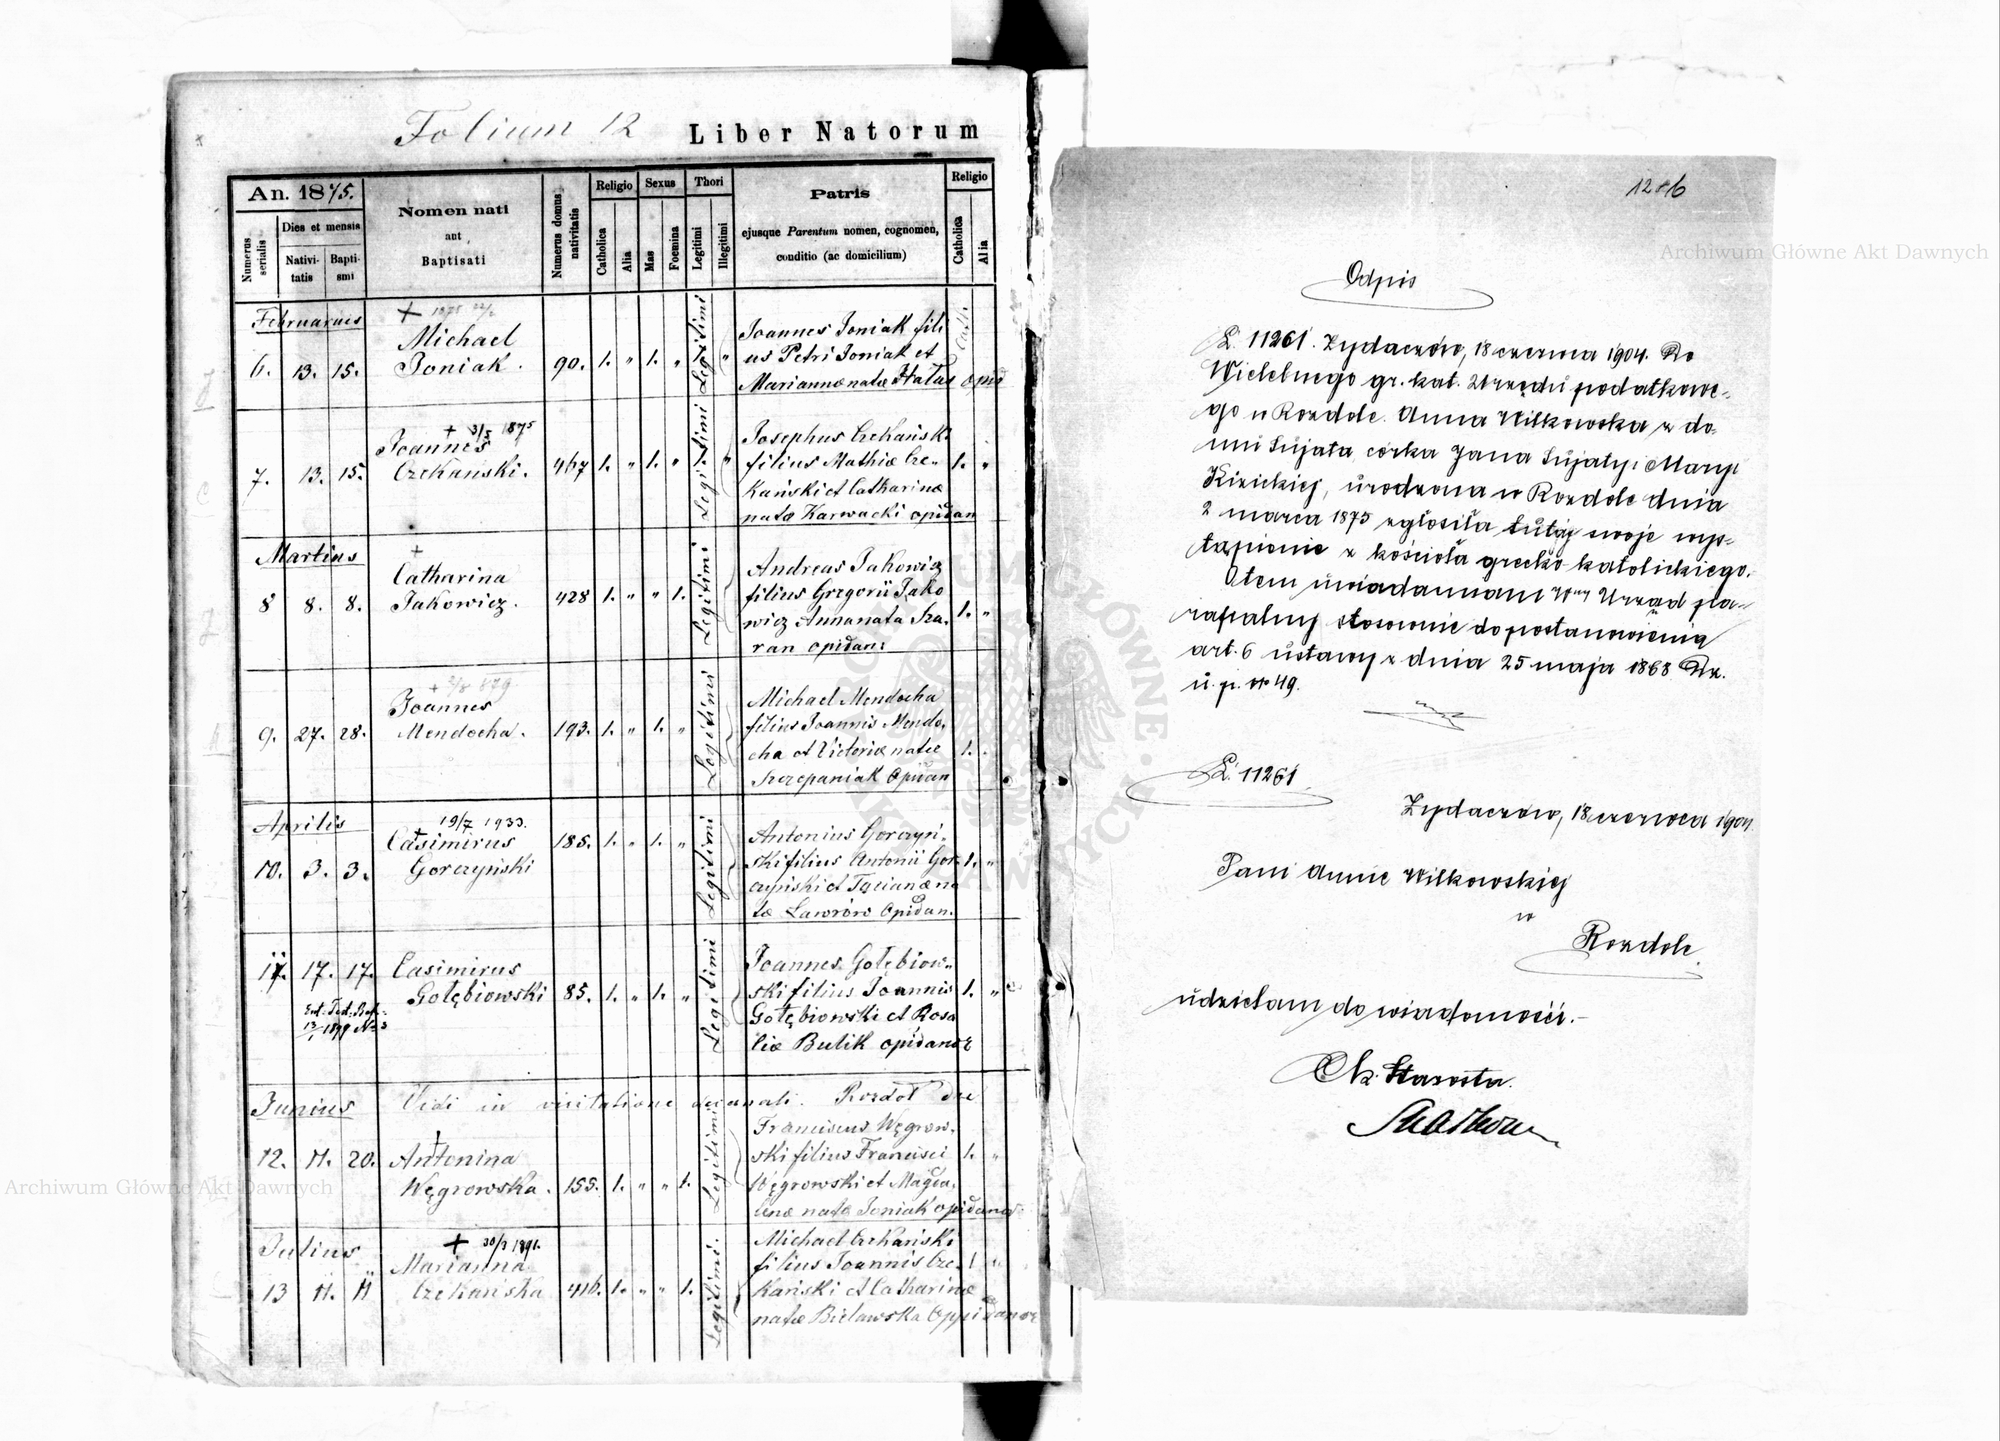 Folium 12 Liber Natorum
An. 1875.
Numerus serialis
Dies et mensis
Nativitatis
Baptismi
Nomen nati
aut
Baptisati
Numerus domus nativitatis
Religio
Catholica
Alia
Sexus
Mas
Foemina
Thori
Legitimi
Illegitimi
Patris
ejusque Parentum nomen, cognomen,
conditio (ac domicilium)
Religio
Catholica
Alia
Februarius
+ 1875
6. 13. 15. Michael
Joniak. 90. 1. " 1. " Legitimi "
Joannes Joniak fili
us Petri Joniak et
Mariannæ natæ
+ 3/5 1875
7. 13. 15. Joannes
Czekański. 467 1. " 1. " Legitimi "
Josephus Czekański
filius Mathiæ Cze- 1. "
kański et Catharinæ
natæ Karwacki opidan
Martius
+
8 8. 8. Catharina
Jakowicz. 428 1. " " 1. Legitimi
Andreas Jakowicz
filius Gregorii Jako
wicz Anna nata Sza- 1. "
ran opidan:
9. 27. 28. Joannes
Mendocha. 193. 1. " 1. " Legitimi
Michael Mendocha
filius Joannis Mendo-
cha et Victoriæ natæ 1.
Szczepaniak Opidan
Aprilis
+ 19/7 1933.
10. 3. 3. Casimirus
Gorczyński 185. 1. " 1. " Legitimi
Antonius Gorczyń-
ski filius Antonii Gor- 1. "
czyński et Tacianæ na
tæ Ławrów Opidan.
11. 17. 17. Casimirus
Gołębiowski 85. 1. " 1. " Legitimi
Joannes Gołębiow-
ski filius Joannis 1. "
Gołębiowski et Rosa
liæ Bulik opidanor
Junius Vidi in visitatione decanali. Rozdół die
+
12. 11. 20. Antonina
Węgrowska. 155. 1. " " 1. Legitimi
Franciscus Węgrow-
ski filius Francisci 1. "
Węgrowski et Magda-
lenæ natæ Joniak opidanor
Julius
+ 30/3 1891.
13 11. 11 Marianna
Czekańska 416. 1. " " 1. Legitimi.
Michael Czekański
filius Joannis Cze- 1 "
kański et Catharinæ
natæ Bielawska Oppidanor
1286
Odpis
L. 11261. Żydaczów, 18 czerwca 1904. Do
Wielebnego gr. kat. Urzędu podatkowe-
go w Rozdole. Anna Wilkowska z do-
mu Sujata córka Jana Sujaty i Maryi
Kizickiej, urodzona w Rozdole dnia
2 marca 1875 zgłosiła tutaj swoje wys-
tąpienie z kościoła grecko katolickiego.
O tem uwiadamiam Wny Urząd pa-
rafialny stosownie do postanowienia
art. 6 ustawy z dnia 25 maja 1868 Dz.
u. p. № 49.
L. 11261
Żydaczów, 18 czerwca 1904.
Pani Annie Wilkowskiej
w
Rozdole.
udzielam do wiadomości.-
Ck. Starosta.
Archiwum Główne Akt Dawnych
Archiwum Główne Akt Dawnych